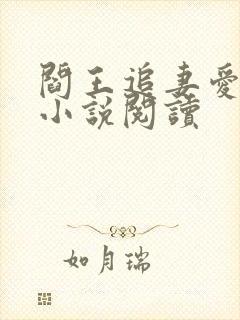 閻王追妻愛
小說閱讀
如月瑞